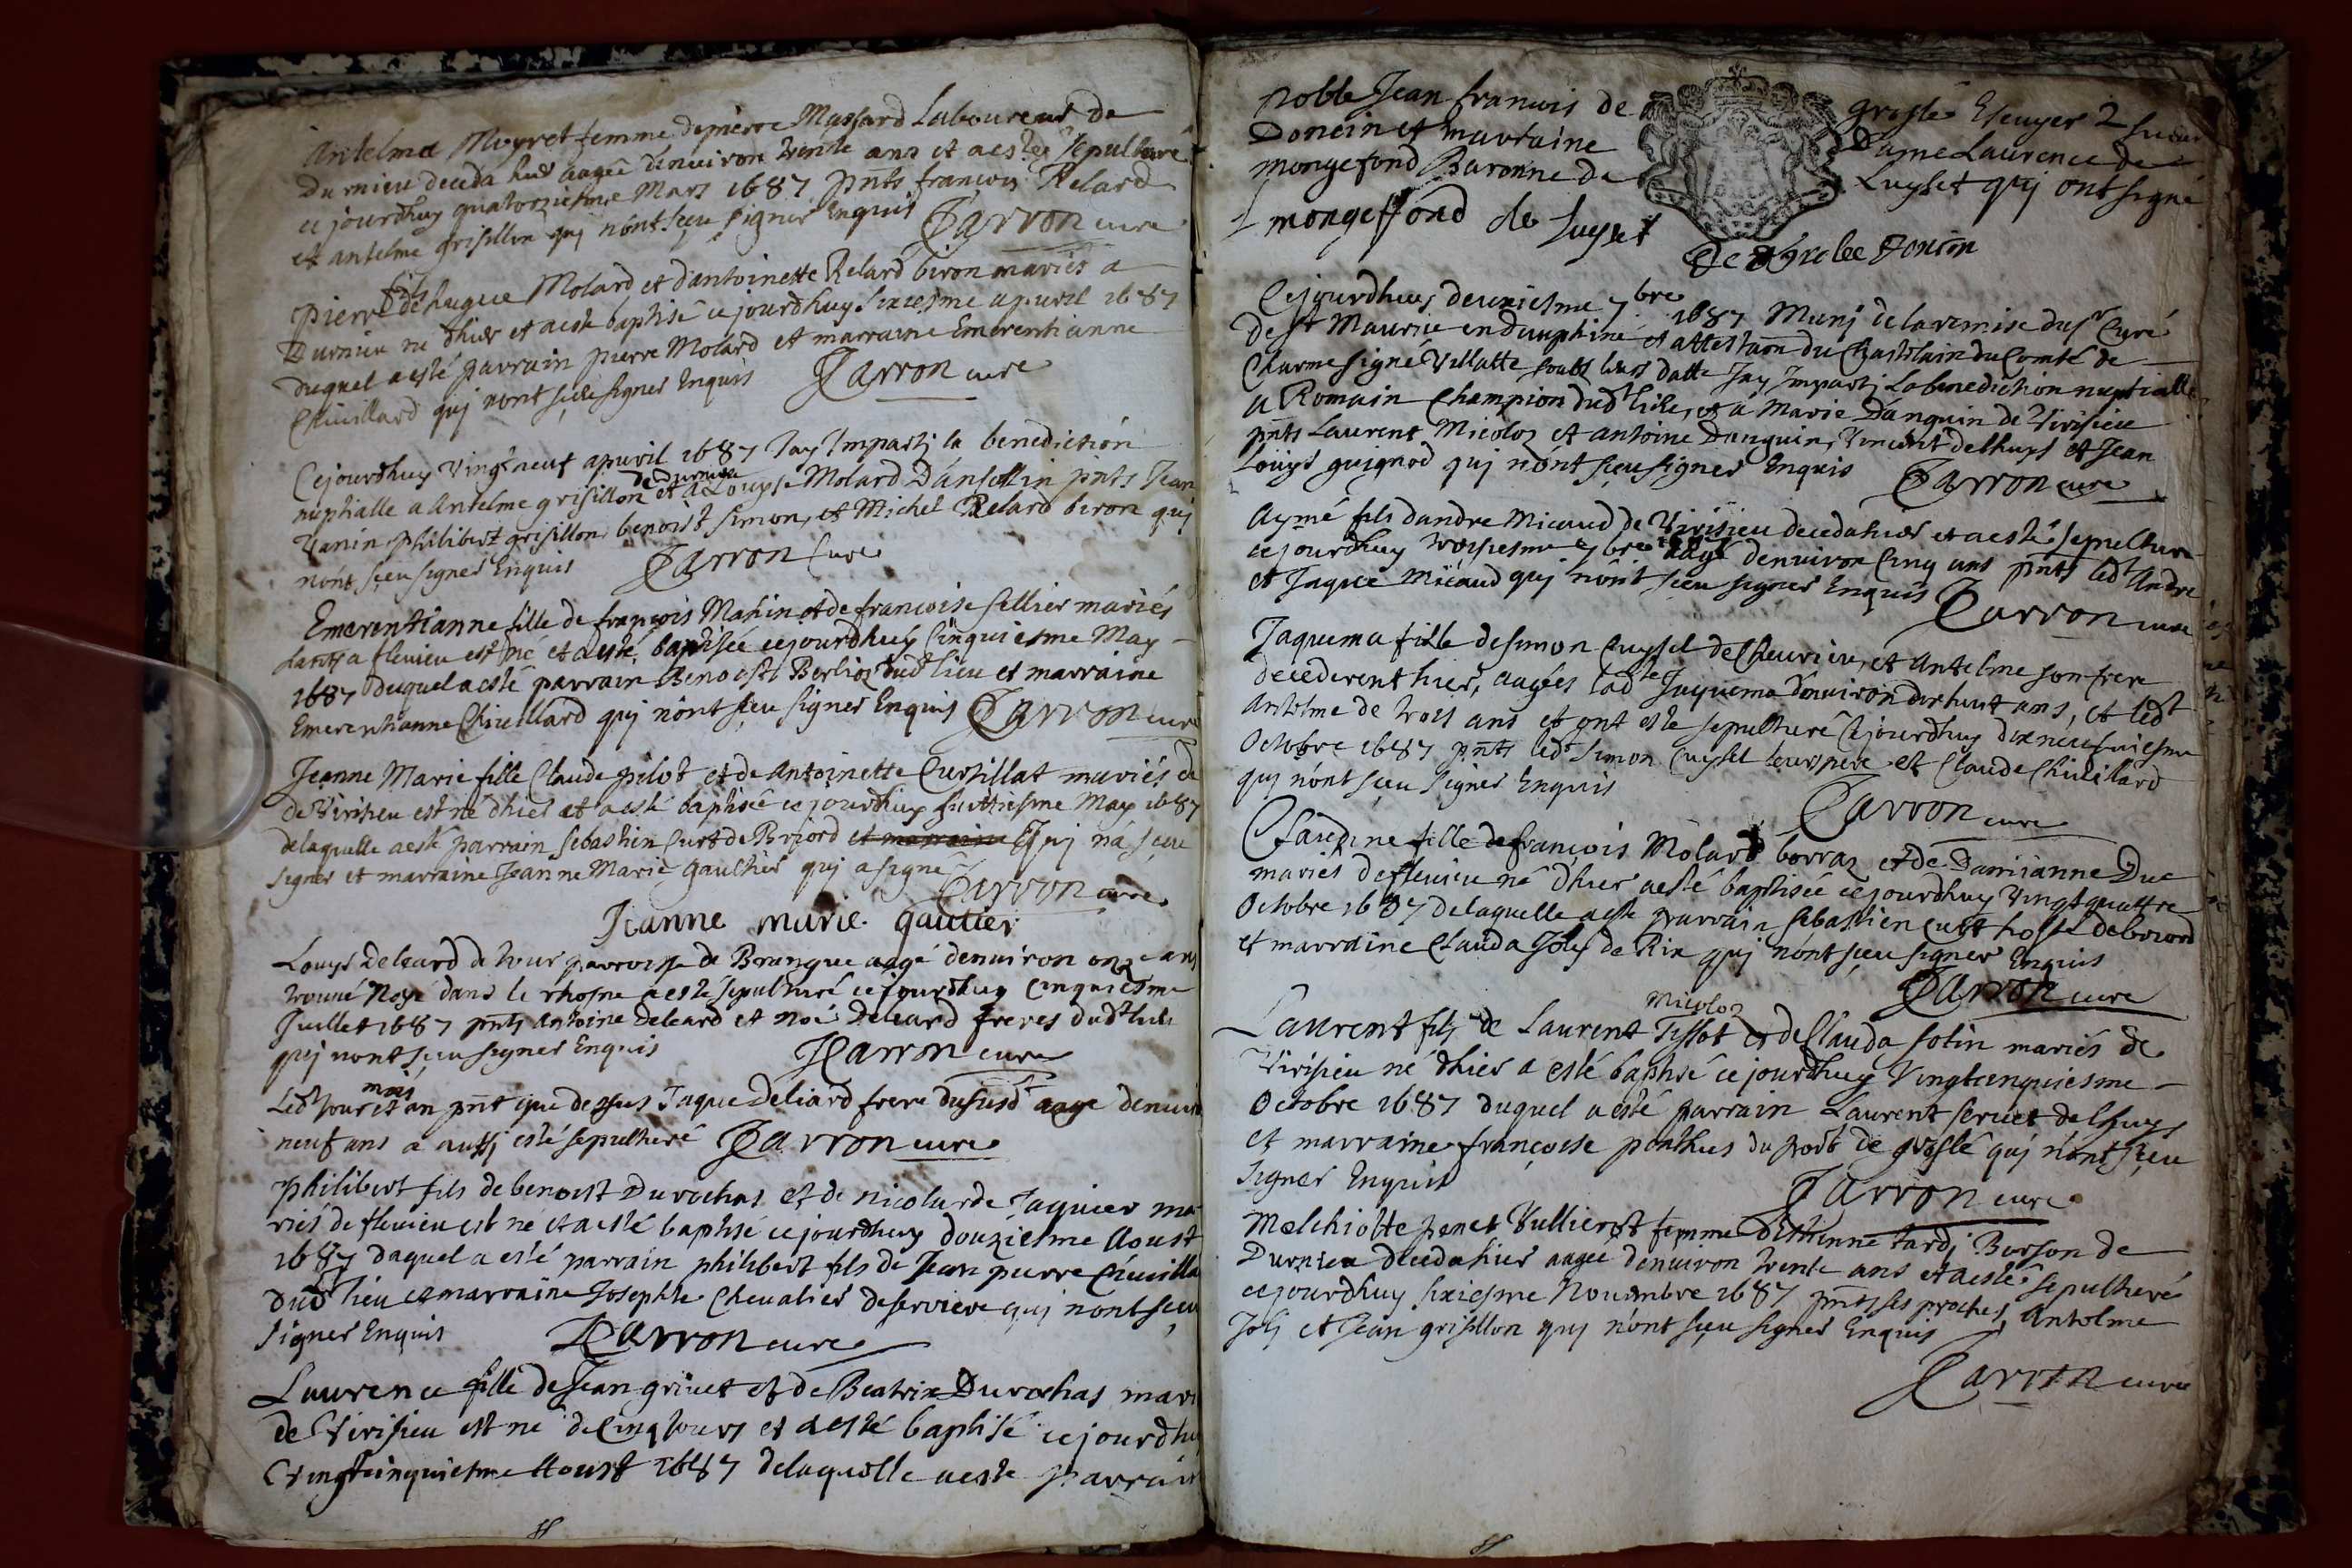 Antelma Moyret femme de pierre Massard Laboureur de
Durnieu deceda hier aagée denuiron trente ans et aesté Sepulturé
cejourdhuy quatorziesme Mars 1687 pnts françois Relard
et antelme grisillon quj nónt sçeu signer Enquis Carron cure
Pierre fils de hugue Molard et dantoinette Relard biron mariés a
Durnieu né dhier et aesté baptisé cejourdhuy sixiesme apuril 1687
duquel aesté parrain pierre Molard et marraine Emerentianne
Chiuillard quj nont sçeu signer Enquis Carron cure
Cejourdhuy vingtneuf apuril 1687 Jay Impartj la benediction
nuptialle a Antelme grisillon de Durnieu et a Louyse Molard Dansolin pnts Jean
Vanin philibert grisillon, benoist simon, et Michel Relard biron quj
nónt sçeu signer Enquis Carron Cure
Emerentianne fille de françois Mahin et de francoise sellier mariés
a fleuieu est né et aesté baptisée cejourdhuy Cinquiesme May
1687 duquel aesté parrain Benoist Berlioz dudt lieu et marraine
Emerentianne Chiuillard quj nónt sçeu signer Enquis Carron cure
Jeanne Marie fille Claude pilot et de Antoinette Cursillat mariés
de Virisieu est né dhier et aesté baptisée cejourdhuy huittiesme May 1687
delaquelle aesté parrain sebastien Curt de Briord et marraine Quj na sçeu
signer et marraine Jeanne Marie gaultier quj a signé
Carron cure
Jeanne marie gautier
Louys deleard de tour parroisse de Brangue aagé denuiron onze ans
trouué Noyé dans le rhosne aesté sepulturé cejourdhuy cinquiesme
Juillet 1687 pnts Antoine deleard et noé deleard freres dudt lieu
quj nont sçeu signer Enquis Carron cure
Ledt jour mois et an pnt que dessus Jaque deliard frere dususdt aagé denuiron
neuf ans a aussj esté sepulturé Carron cure
Philibert fils de benoist Durochas et de nicolarde Jaquier ma
riés de fleuieu est né et aesté baptisé cejourdhuy douziesme Aoust
1687 duquel a esté parrain philibert fils de Jean pierre Chiuilla
dudt lieu et marraine Josephte Cheualier deserriere quj nont sçeu
signer Enquis Carron cure
Laurence fille de Jean griuet et de Beatrix Durochas mari
de Virisieu est né de Cinq jours et aesté baptisé cejourdhuy
Vingtcinquiesme Aoust 1687 delaquelle aesté parrain
noble Jean francois de grosle Escuyer
Doncin et marraine Dame Laurence de
mongefond Baronne de Luyset quj ont signé
mongeffond de luyset
De Grolee Doncin
Cejourdhuy deuxiesme 7bre 1687 Munj de la remise du sr Curé
de st Maurice en dauphiné et attestaon du Chastelain du Comté de
Charme signé Villatte soubs leurs datte Jay Impartj La benediction nuptialle
a Romain Champion dudt lieu, et a Marie Danguin de Virisieu
pnts Laurent Micoloz et antoine Danguin, Vincent delhuys et Jean
Louys guignod quj nónt sçeu signer Enquis Carron cure
Aymé fils dandre Micaud de Virisieu deceda hier et aesté sepulturé
cejourdhuy troiziesme 7bre aagé denuiron Cinq ans pnts ledt Andre
et Jaque Micaud quj nónt sçeu signer Enquis Carron cure
Jaquema fille de simon Cuysel de Cheurieu, et Antelme son frere
decederent hier, aagées ladte Jaquema denuiron dixhuit ans, et ledt
Antelme de trois ans et ont esté sepulturé cejourdhuy dixneufuiesme
Octobre 1687 pnts ledt simon Cuysel leur pere et Claude Chiuillard
quj nónt sçeu signer Enquis
Carron cure
Claudine fille de françois Molard borraz et de Damianne Duc
mariés de flevieu né dhier aesté baptisée cejourdhuy Vingtquattre
Octobre 1687 delaquelle aesté parrain sebastien Curt hoste de briord
et marraine Clauda Joly de Rix quj nont sçeu signer Enquis
Carron cure
Laurent fils de Laurent Micoloz Tissot et de Clauda sotin mariés de
Virisieu né dhier a esté baptisé cejourdhuy Vingtcinquiesme
Octobre 1687 duquel a esté parrain Laurent seruet de lhuys
et marraine françoise ponthus du port de groslé quj nónt sçeu
signer Enquis Carron cure
Melchiotte Vullierot femme dEttienne tardj Borson de
Durnieu deceda hier aagée denuiron trente ans et aesté sepulturé
cejourdhuy sixiesme Nouembre 1687 pnts ses proches, Antelme
Joly et Jean grisillon quj nónt sçeu signer Enquis
Carron cure